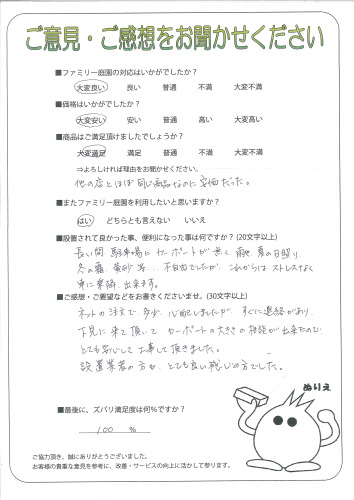 ご意見・ご感想をお聞かせください
■ファミリー庭園の対応はいかがでしたか?
大変良い 良い 普通 不満 大変不満
■価格はいかがでしたか?
大変安い 安い 普通 高い 大変高い
■商品はご満足頂けましたでしょうか?
大変満足 満足 普通 不満 大変不満
⇒よろしければ理由をお聞かせください。
他の店とほぼ同じ商品なのに安価だった。
■またファミリー庭園を利用したいと思いますか?
はい どちらとも言えない いいえ
■設置されて良かった事、便利になった事は何ですか?(20文字以上)
長い間 駐車場に カーポートが 無く、雨、夏の日照り
冬の霜、黄砂 等... 不自由でしたが、これからは ストレスなく
車に乗降 出来ます。
■ご感想・ご要望などをお書きくださいませ。(30文字以上)
ネットの注文で、多少、心配しましたが、すぐに連絡があり、
下見に来て頂いて カーポートの大きさの相談が出来たので
とても安心して工事して頂きました。
設置業者の方も、とても良い感じの方でした。
ぬりえ
■最後に、ズバリ満足度は何%ですか?
100 %
ご協力頂き、誠にありがとうございました。
お客様の貴重な意見を参考に、改善・サービスの向上に活かして参ります。